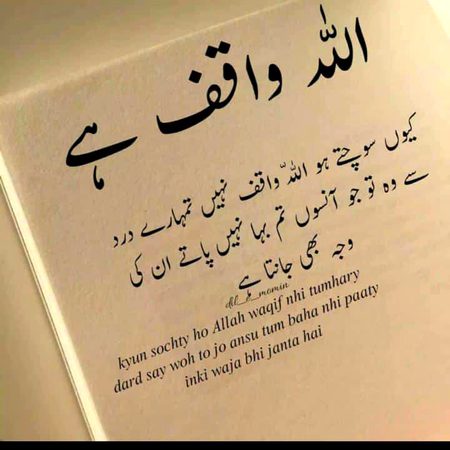 اللہ واقف ہے
کیوں سوچتے ہو اللہ واقف نہیں تمہارے درد
سے وہ تو جو آنسوں تم بہا نہیں پاتے ان کی
وجہ بھی جانتا ہے
dil_e_momin
kyun sochty ho Allah waqif nhi tumhary
dard say woh to jo ansu tum baha nhi paaty
inki waja bhi janta hai